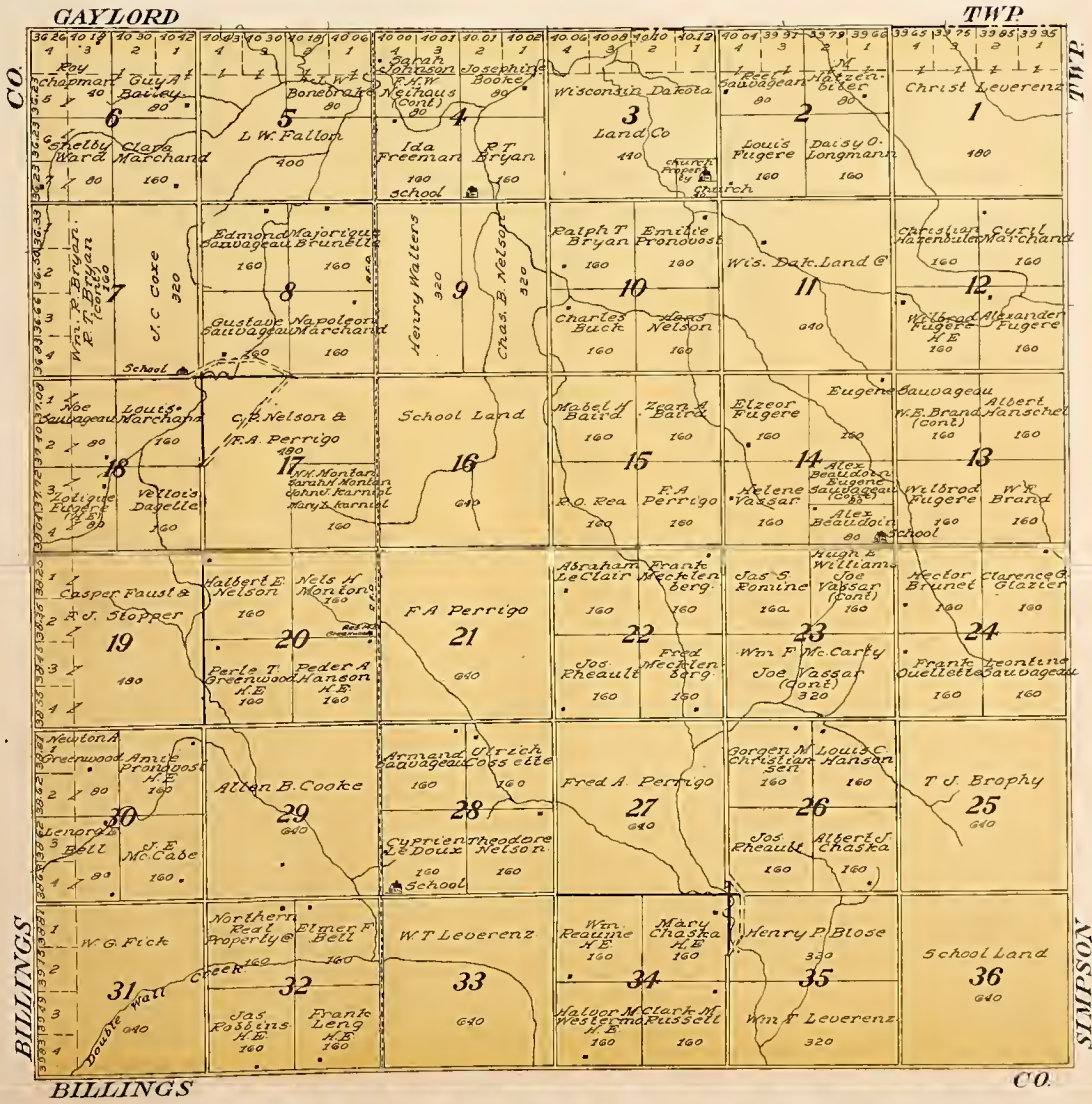 GAYLORD TWP.
CO.
TWP.
36 26 40 18 40 30 40 42
4 3 2 1
40 43 40 30 40 18 40 06
4 3 2 1
40 00 40 01 40 01 40 02
4 3 2 1
40 06 40 08 40 10 40 12
4 3 2 1
4 3 2 1
39 65 39 75 39 85 39 95
4 3 2 1
Roy
Chapman
40
Guy A
Bailey
80
5
6
Shelby
Ward
80
Clara
Marchand
160
6
7
L W
Bonebrake
80
5
L. W. Fallon
400
Sarah
Johnson
F. H. W.
Neihaus
(Cont)
Josephine
Booke
80
4
Ida
Freeman
160
R T
Bryan
160
School
Wisconsin Dakota
3
Land Co
440
Church
Proper
ty
Church
Sauvagean
80
80
2
Louis
Fugere
160
Daisy O.
Longmann
160
Christ Leverenz
1
480
Wm. R. Bryan.
R. T. Bryan
(Cont)
160
1
2
3
4
7
J. C Coxe
320
School
Edmond
Sauvageau
160
Majorique
Brunelle
160
R.F.D.
8
Gustave
Sauvageau
160
Napoleon
Marchand
160
Henry Walters
320
9
Chas. B. Nelson
320
Ralph T
Bryan
160
Emilie
Pronovost
160
10
Charles
Buck
160
Hans
Nelson
160
Wis. Dak. Land Co
11
640
Christian
Hazenbuler
160
Cyril
Marchand
160
12
Wilbrod
Fugere
H E
160
Alexander
Fugere
160
1
2
3
4
Noe
Sauvageau
80
Louis
Marchand
160
18
Zotique
Fugere
(H E)
80
Vellois
Dagelle
160
C. P. Nelson &
F. A. Perrigo
480
17
N. H. Montan
Sarah H Montan
John J. Karniol
Mary L Karniol
160
School Land
16
640
Mabel H
Baird
160
Zean A
Baird
160
15
R. O. Rea
160
F. A
Perrigo
160
Elzeor
Fugere
160
Eugene Sauvageau
160
14
Helene
Vassar
160
Alex
Beaudoin
Eugene
Sauvageau
(Cont)
80
Alex
Beaudoin
80
School
W. E. Brand
(Cont)
160
Albert
Hanschel
160
13
Wilbrod
Fugere
160
W E
Brand
160
1
2
3
4
Casper Faust &
F. J. Stopper
19
480
Halbert E.
Nelson
160
Nels H
Monton
160
R.F.D.
20
Perle T.
Greenwood
H. E
160
Peder A
Hanson
H. E.
160
F A Perrigo
21
640
Abraham
Le Clair
160
Frank
Mecklen
berg.
160
22
Jos
Rheault
160
Fred
Mecklen
berg.
160
Jas S
Romine
160
Hugh E
Williams
Joe
Vassar
(Cont)
160
23
Wm F Mc Carty
Joe Vassar
(Cont)
320
Hector
Brunet
160
Clarence G.
Glazier
160
24
Frank
Ouellette
160
Leontine
Sauvageau
160
Newton A
Greenwood
80
Amie
Pronovost
H. E
160
1
2
30
Lenora E
Bell
80
J. E
Mc Cabe
160
3
4
Allen B. Cooke
29
640
Armand
Sauvageau
160
Ulrich
Cossette
160
28
Cyprien
Le Doux
160
Theodore
Nelson
160
School
Fred A. Perrigo
27
640
Gorgen M
Christian
sen
160
Louis C.
Hanson
160
26
Jos
Rheault
160
Albert J.
Chaska
160
T J. Brophy
25
640
1
2
3
4
W. G. Fick
31
640
Double Wall Creek
Northern
Real
Property Co
160
Elmer F
Bell
160
32
Jas
Robbins
H. E.
160
Frank
Leng
H. E.
160
W. T Leverenz
33
640
Wm.
Reaume
H. E
160
Mary
Chaska
H. E
160
34
Halvor M
Westermo
H. E.
160
Clark M
Russell
160
Henry P. Blose
320
35
Wm T Leverenz
320
School Land
36
640
BILLINGS
SIMPSON
BILLINGS CO.